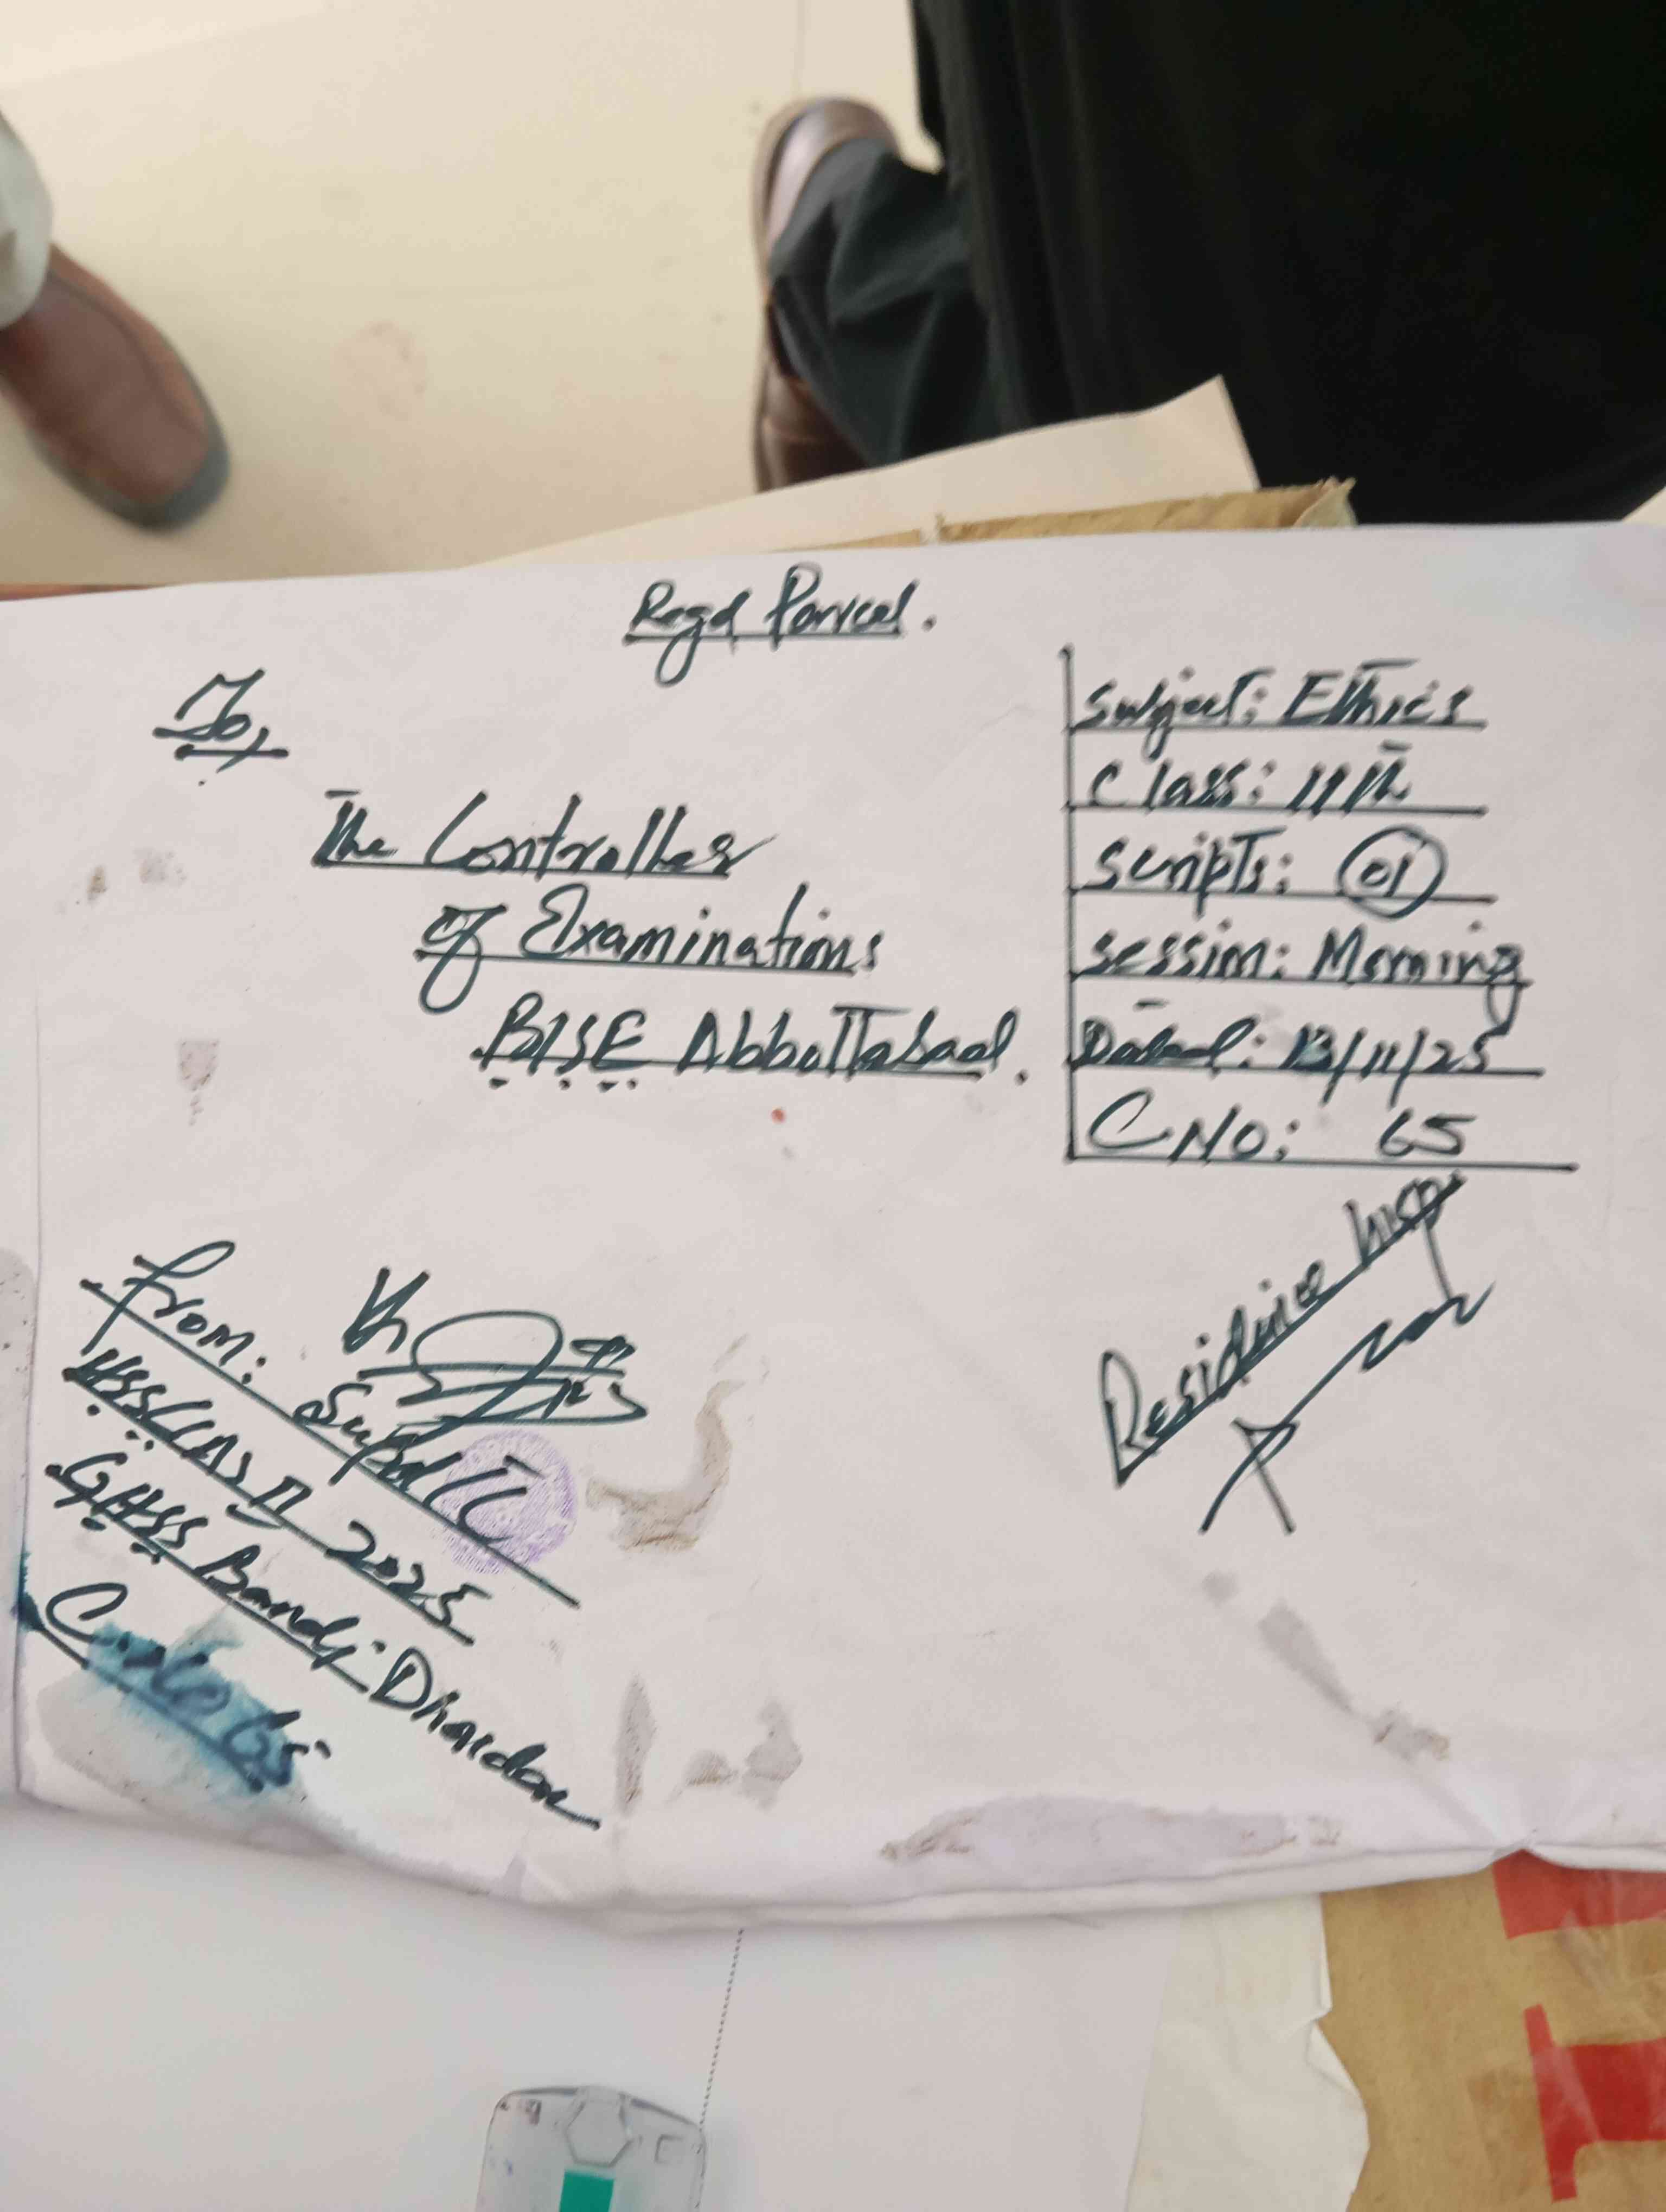 Regd Parcel.
To,
The Controller
of Examinations
BISE Abbottabad.
Subject: Ethics
Class: 11th
Scripts: 01
Session: Morning
Dated: 13/11/25
C No: 65
From: Supdtt
HSSC(A) II 2025
GHSS Bandi Dhundan
C. No 65